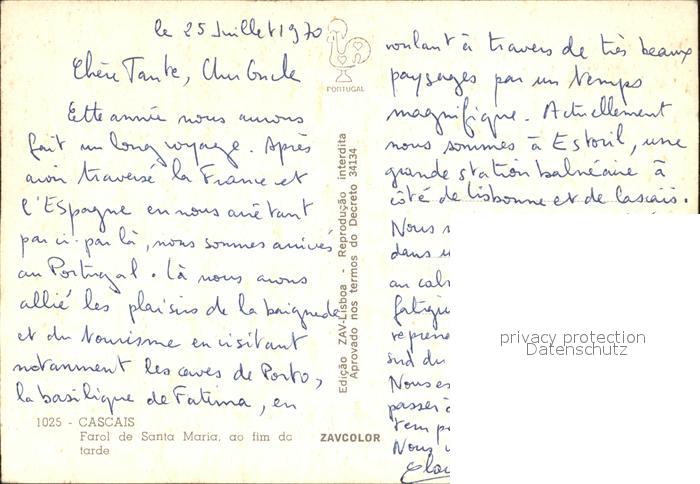 le 25 Juillet 1970
Chère Tante, Cher Oncle
Cette année nous avons
fait un long voyage. Après
avoir traversé la France et
l'Espagne en nous arrêtant
par ci-par là, nous sommes arrivés
au Portugal. Là nous avons
allié les plaisirs de la baignade
et du tourisme en visitant
notamment les caves de Porto,
la basilique de Fatima, en
1025 - CASCAIS
Farol de Santa Maria, ao fim da
tarde
PORTUGAL
Edição ZAV-Lisboa - Reprodução interdita
Aprovado nos termos do Decreto 34134
ZAVCOLOR
roulant à travers de très beaux
paysages par un temps
magnifique. Actuellement
nous sommes à Estoril, une
grande station balnéaire à
côté de Lisbonne et de Cascais.
Nous
dans
au
fatigu
repren
sud du
Nous es
passer
temps
Nous
privacy protection
Datenschutz